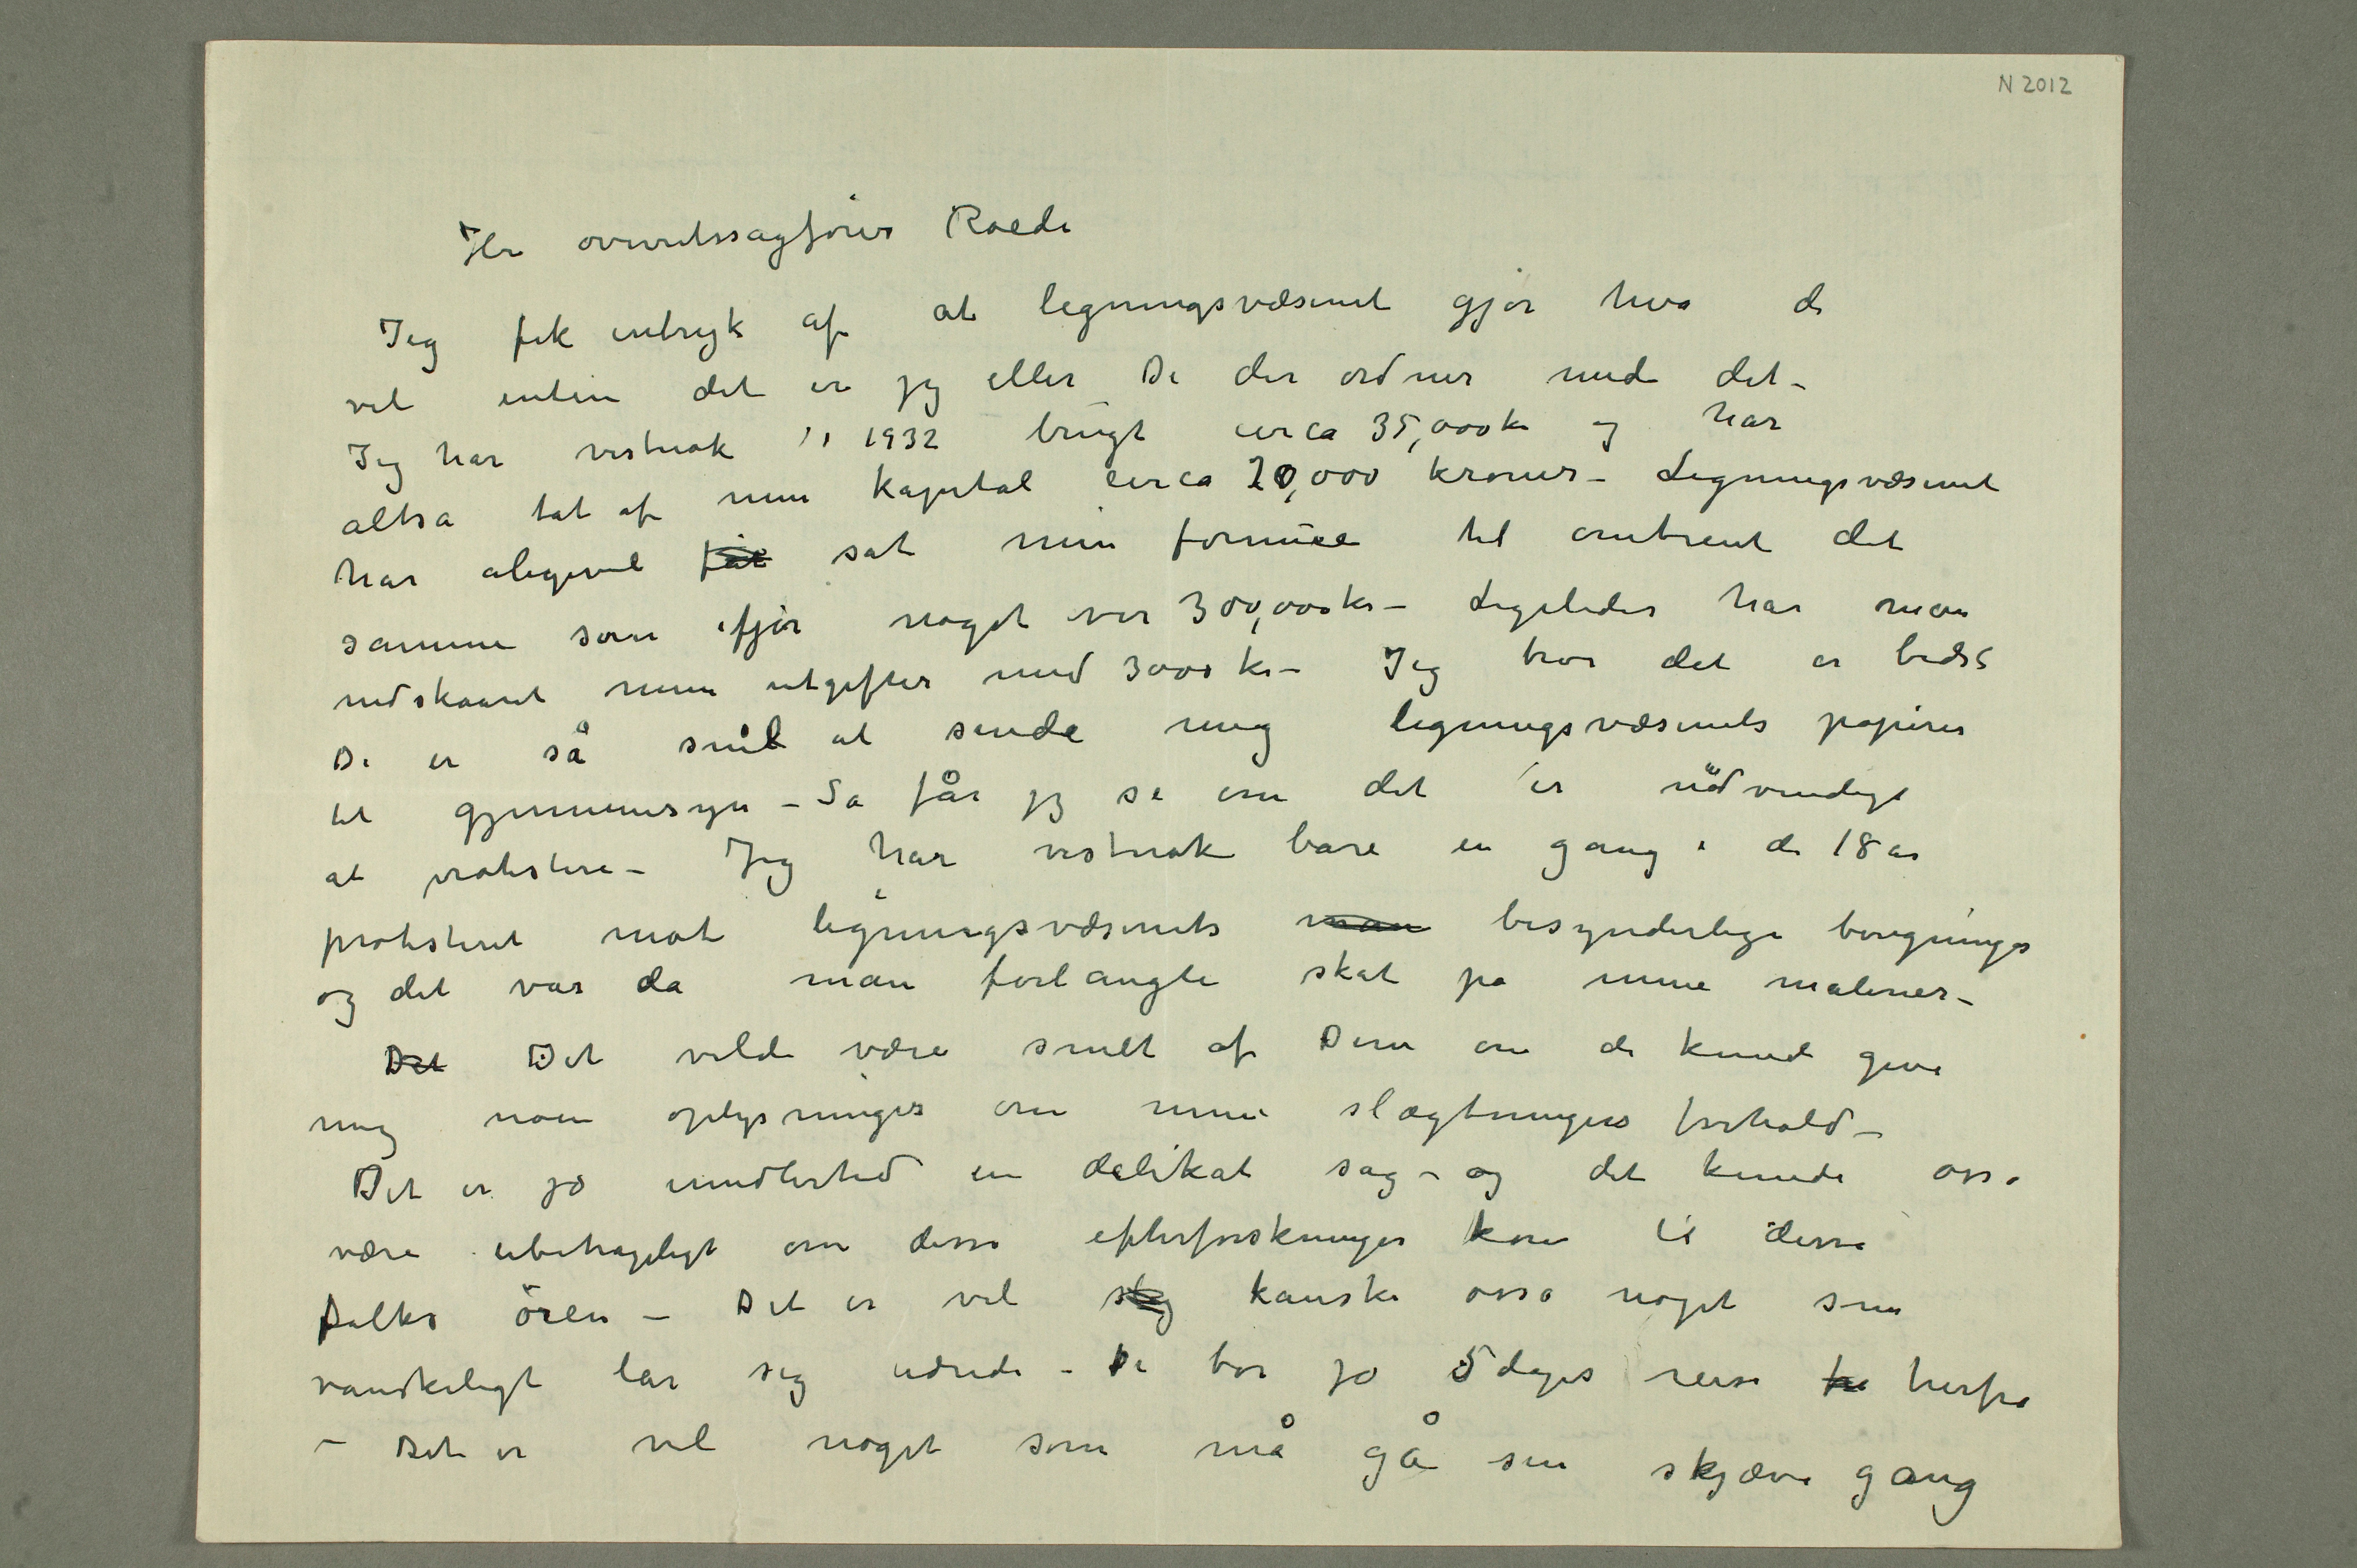 N 2012
Hr overretssagfører Roede
Jeg fik intryk af at ligningsvæsenet gjør hva de
vil enten det er jeg eller De der ordner med det –
Jeg har vistnok i 1932 brugt circa 35,000 kr og har
altså tat af min kapital circa 20,000 kroner – Ligningsvæsenet
har aligevel får sat min formue til omtrent det
samme som ifjor noget over 300,000 kr – Ligeledes har man
nedskaaret mine utgifter med 3000 kr – Jeg tror det er bedst
De er så snil at sende mig ligningsvæsenets papirer
til gjennemsyn – Så får jeg se om det er nødvendigt
at protestere – Jeg har vistnok bare en gang i de 18 år
protisteret mot ligningsvæsenets man besynderlige beregninger
og det var da man forlangte skat på mine malerier –
Det Det vilde være snilt af Dem om de kunde give
mig noen oplysninger om mine slægtningers forhold –
Det er jo imidlertid en delikat sag – og det kunde osså
være ubehageligt om disse efterforskninger kom til disse
folks ören – Det er vel kanske osså noget som
vanskeligt lar sig udrede – De bor jo 5 dages reise fra herfra
– Det er vel noget som må gå sin skjæve gang